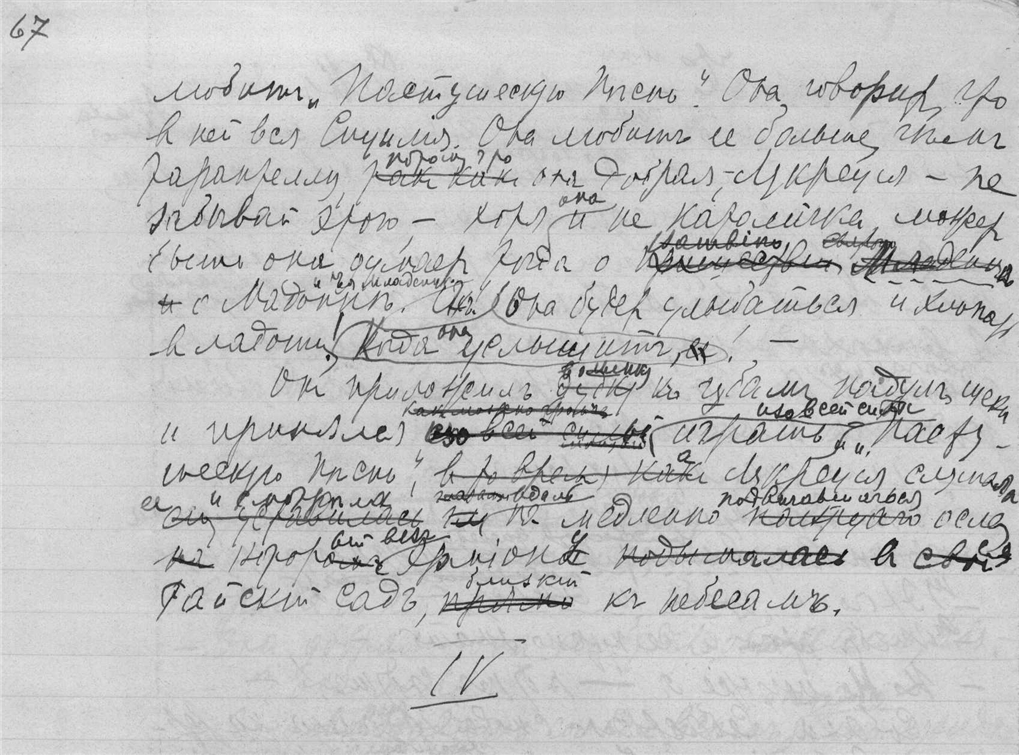 67
любитъ „Пастушескую Пѣснь“. Она, говорит, что
в ней вся Сицилія. Она любитъ ее больше, чѣмъ
тарантеллу, потому что она добрая, Лукреція – не
забывай этого – хотя она и не католичка, может
быть она думает тогда о
с Мадонной. и ея младенцѣ Она будет улыбаться и хлопать
в ладоши! Когда она услышитъ, –
Он приложилъ волынку къ губамъ, надулъ щеки
и принялся изо всей силы играть „Пасту-
шескую Пѣснь“, а Лукреція слушала
ея и смотрѣла вдаль на медленно подвигавшагося осла
который везъ Эрміону в ея
райскій садъ, близкій къ небесамъ.
IV